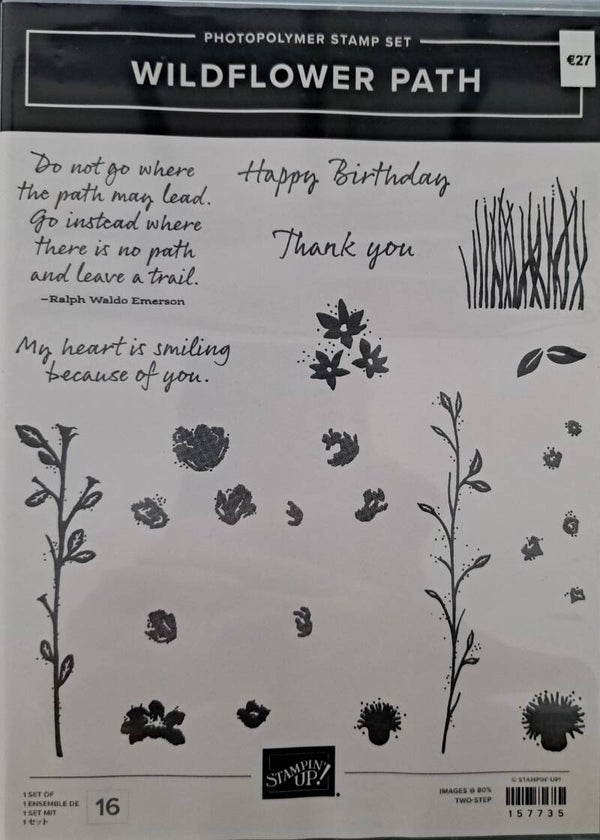 PHOTOPOLYMER STAMP SET
WILDFLOWER PATH
€27
Do not go where
the path may lead.
Go instead where
there is no path
and leave a trail.
–Ralph Waldo Emerson
Happy Birthday
Thank you
My heart is smiling
because of you.
1 SET OF
1 ENSEMBLE DE
1 SET MIT
1 セット
16
STAMPIN' UP!
IMAGES @ 80%
TWO-STEP
© STAMPIN' UP!
157735